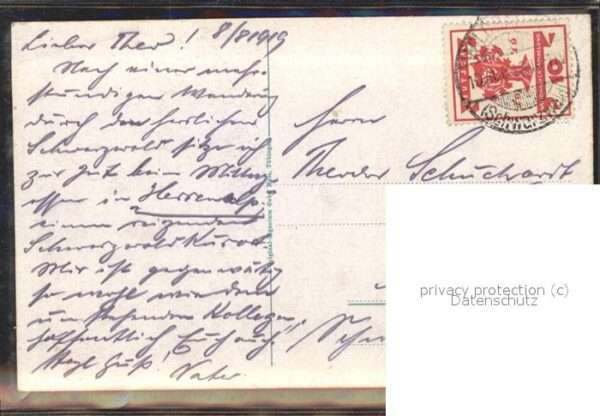 Lieber Theo! 8/8 1919
Nach einer mehr-
stündigen Wanderung
durch den herrlichen
Schwarzwald sitze ich
zur Zeit beim Mittag-
essen in Herrenalp,
einem reizenden
Schwarzwaldkurort.
Mir ist gegenwärtig
so wohl wie dem
umstehenden Kollegen,
hoffentlich Euch auch.
Herzl Gruß!
Vater
Herrn
Theodor Schuchardt
10
(Schwarzw
privacy protection (c)
Datenschutz